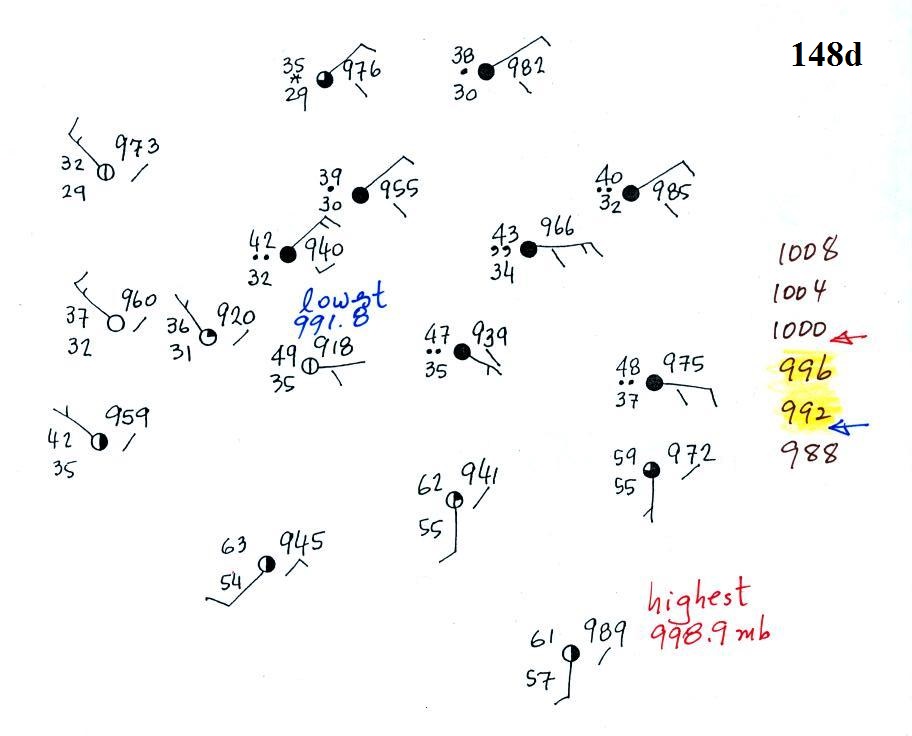 148d
35 976
29
38 982
30
32 973
29
39 955
30
40 985
32
42 940
32
43 966
34
37 960
32
36 920
31
lowest
991.8
49 918
35
47 939
35
48 975
37
42 959
35
62 941
55
59 972
55
63 945
54
61 989
57
highest
998.9 mb
1008
1004
1000
996
992
988